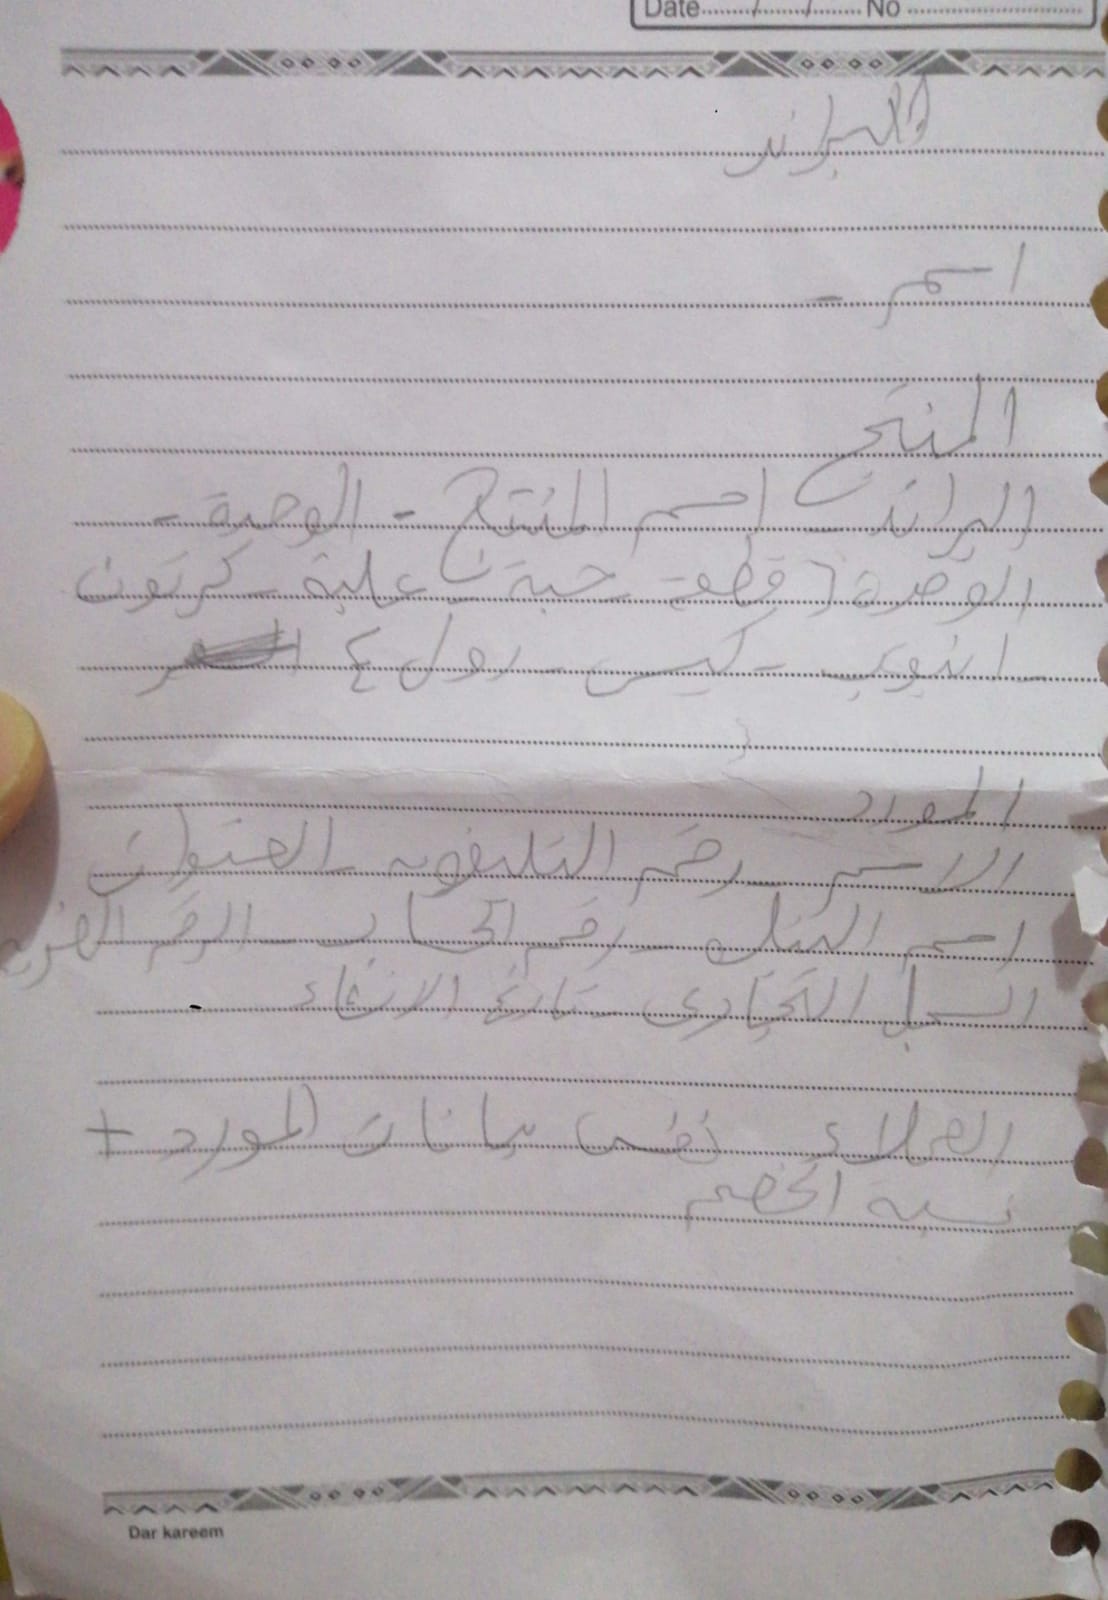 Date....../....../...... No ..............................
البراند
اسم -
المنتج
البراند - اسم المنتج - الوحدة -
الوحدة ( قطعة - حبة - علبة - كرتون
- انبوب - كيس - رول
المورد
الاسم - رقم التليفون - العنوان
اسم البنك - رقم الحساب - الرقم الضريبي
السجل التجاري - تاريخ الانتهاء -
العملاء نفس بيانات المورد +
نسبة الخصم
Dar kareem